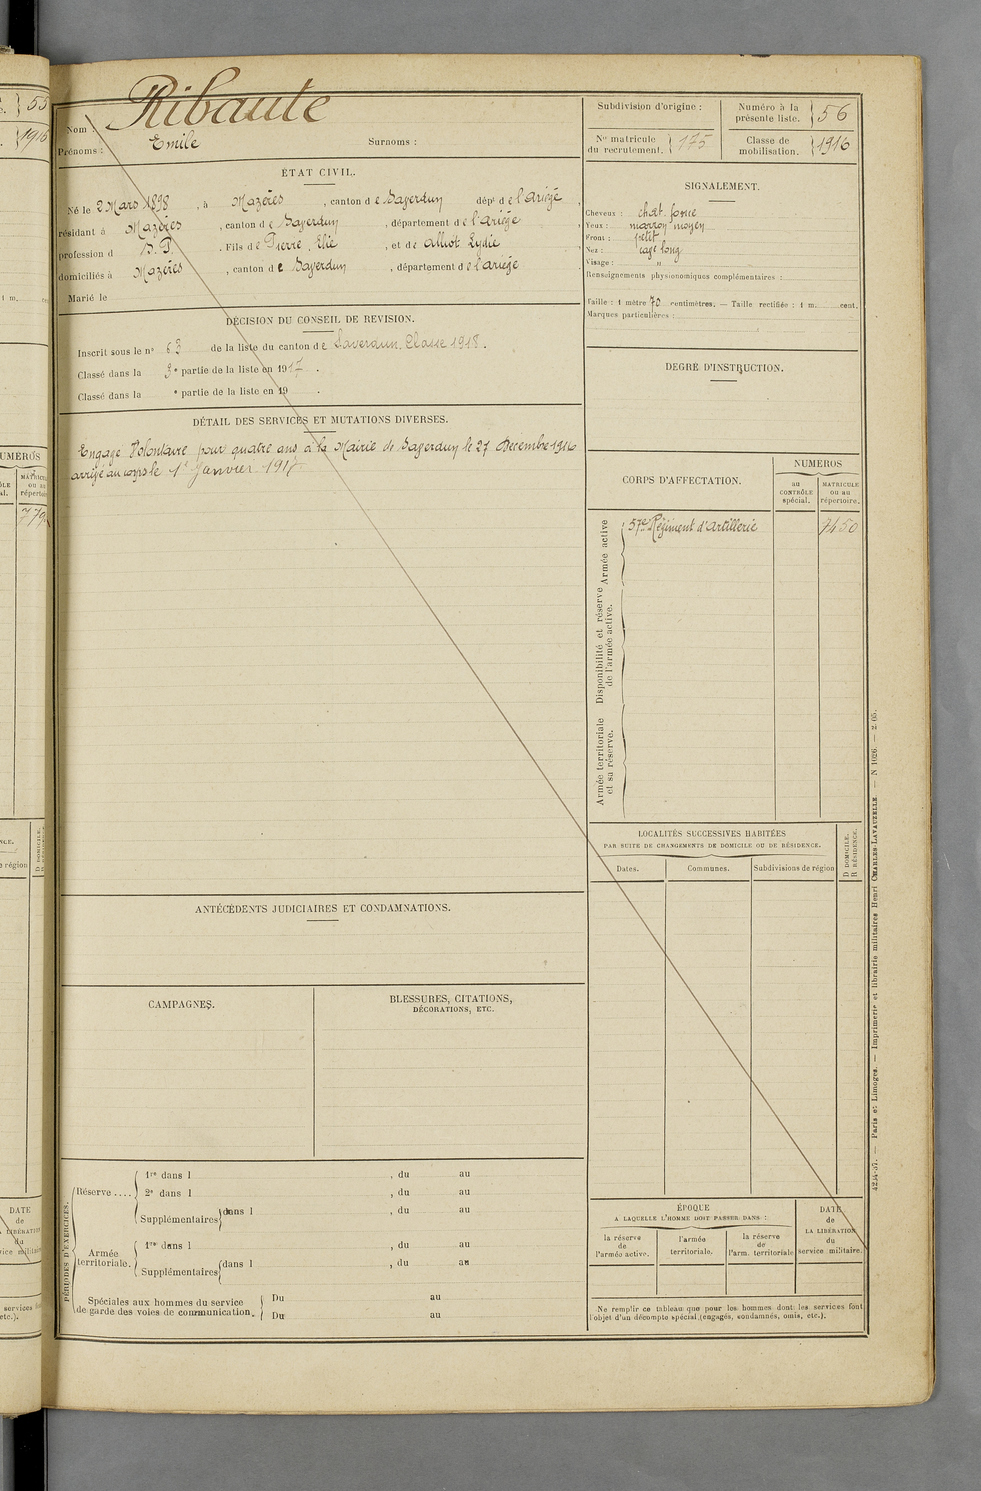 55
1916
Ribaute
Nom :
Emile
Prénoms :
Surnoms :
ÉTAT CIVIL.
Né le 2 Mars 1898, à Mazères, canton de Saverdun dépt de l'Ariège,
résidant à Mazères, canton de Saverdun, département de l'Ariège,
profession d S. P., Fils de Pierre, Elie, et de Alliot Lydie
domiciliés à Mazères, canton de Saverdun, département de l'Ariège
Marié le
DÉCISION DU CONSEIL DE REVISION.
Inscrit sous le no 63 de la liste du canton de Saverdun. Classe 1918.
Classé dans la 3e partie de la liste en 1917.
Classé dans la e partie de la liste en 19 .
DÉTAIL DES SERVICES ET MUTATIONS DIVERSES.
Engagé Volontaire pour quatre ans à la Mairie de Saverdun le 27 Décembre 1916
arrivé au corps le 1er Janvier 1917
ANTÉCÉDENTS JUDICIAIRES ET CONDAMNATIONS.
CAMPAGNES.
BLESSURES, CITATIONS,
DÉCORATIONS, ETC.
PÉRIODES D'EXERCICES.
Réserve ....
1re dans l , du au
2e dans l , du au
Supplémentaires dans l , du au
Armée
territoriale.
1re dans l , du au
Supplémentaires dans l , du au
Spéciales aux hommes du service
de garde des voies de communication.
Du au
Du au
Subdivision d'origine :
Numéro à la
présente liste. 56
No matricule
du recrutement. 175
Classe de
mobilisation. 1916
SIGNALEMENT.
Cheveux : chat. foncé
Yeux : marron moyen
Front : petit
Nez : cave long
Visage : "
Renseignements physionomiques complémentaires :
Taille : 1 mètre 70 centimètres. — Taille rectifiée : 1 m. cent.
Marques particulières :
DEGRÉ D'INSTRUCTION.
CORPS D'AFFECTATION.
NUMÉROS
au
CONTRÔLE
spécial.
MATRICULE
ou au
répertoire.
Armée active
57e Régiment d'Artillerie 7450
Disponibilité et réserve
de l'armée active.
Armée territoriale
et sa réserve.
LOCALITÉS SUCCESSIVES HABITÉES
PAR SUITE DE CHANGEMENTS DE DOMICILE OU DE RÉSIDENCE.
Dates.
Communes.
Subdivisions de région
D DOMICILE.
R RÉSIDENCE.
ÉPOQUE
A LAQUELLE L'HOMME DOIT PASSER DANS :
la réserve
de
l'armée active.
l'armée
territoriale.
la réserve
de
l'arm. territoriale
DATE
de
LA LIBÉRATION
du
service militaire.
Ne remplir ce tableau que pour les hommes dont les services font
l'objet d'un décompte spécial (engagés, condamnés, omis, etc.).
4234-37. — Paris et Limoges. — Imprimerie et librairie militaires Henri CHARLES-LAVAUZELLE. — N 1026. — 2 05.